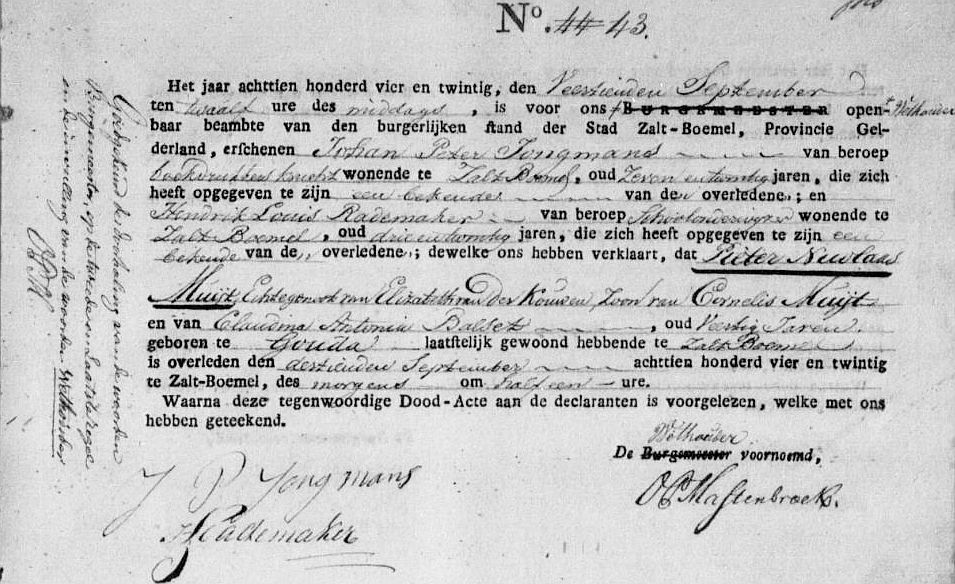 No. 44 43.
Het jaar achttien honderd vier en twintig, den Veertienden September
ten twaalf ure des middags, is voor ons + BURGEMEESTER open- + Wethouder
baar beambte van den burgerlijken stand der Stad Zalt-Boemel, Provincie Gel-
derland, erschenen Johan Peter Jongmans van beroep
boekdrukkers knecht wonende te Zalt Boemel, oud Zeven en twintig jaren, die zich
heeft opgegeven te zijn een bekende van den overledene; en
Hendrik Louis Rademaker van beroep Schoolonderwijzer wonende te
Zalt Boemel, oud drie en twintig jaren, die zich heeft opgegeven te zijn een
bekende van de overledene; dewelke ons hebben verklaart, dat Pieter Nicolaas
Muijt, Echtgenoot van Elizabeth van der Kouwen, Zoon van Cornelis Muijt
en van Claudina Antonia Balset, oud Veertig Jaren
geboren te Gouda laatstelijk gewoond hebbende te Zalt Boemel
is overleden den dertienden September achttien honderd vier en twintig
te Zalt-Boemel, des morgens om half een ure.
Waarna deze tegenwoordige Dood-Acte aan de declaranten is voorgelezen, welke met ons
hebben geteekend.
Wethouder
De Burgemeester voornoemd,
J P Jongmans
Mastenbroek.
HL Rademaker
Goedgekeurd de doorhaling van de woorden
Burgemeester, op de tweede en laatste regel
en de invulling van de woorden Wethouder